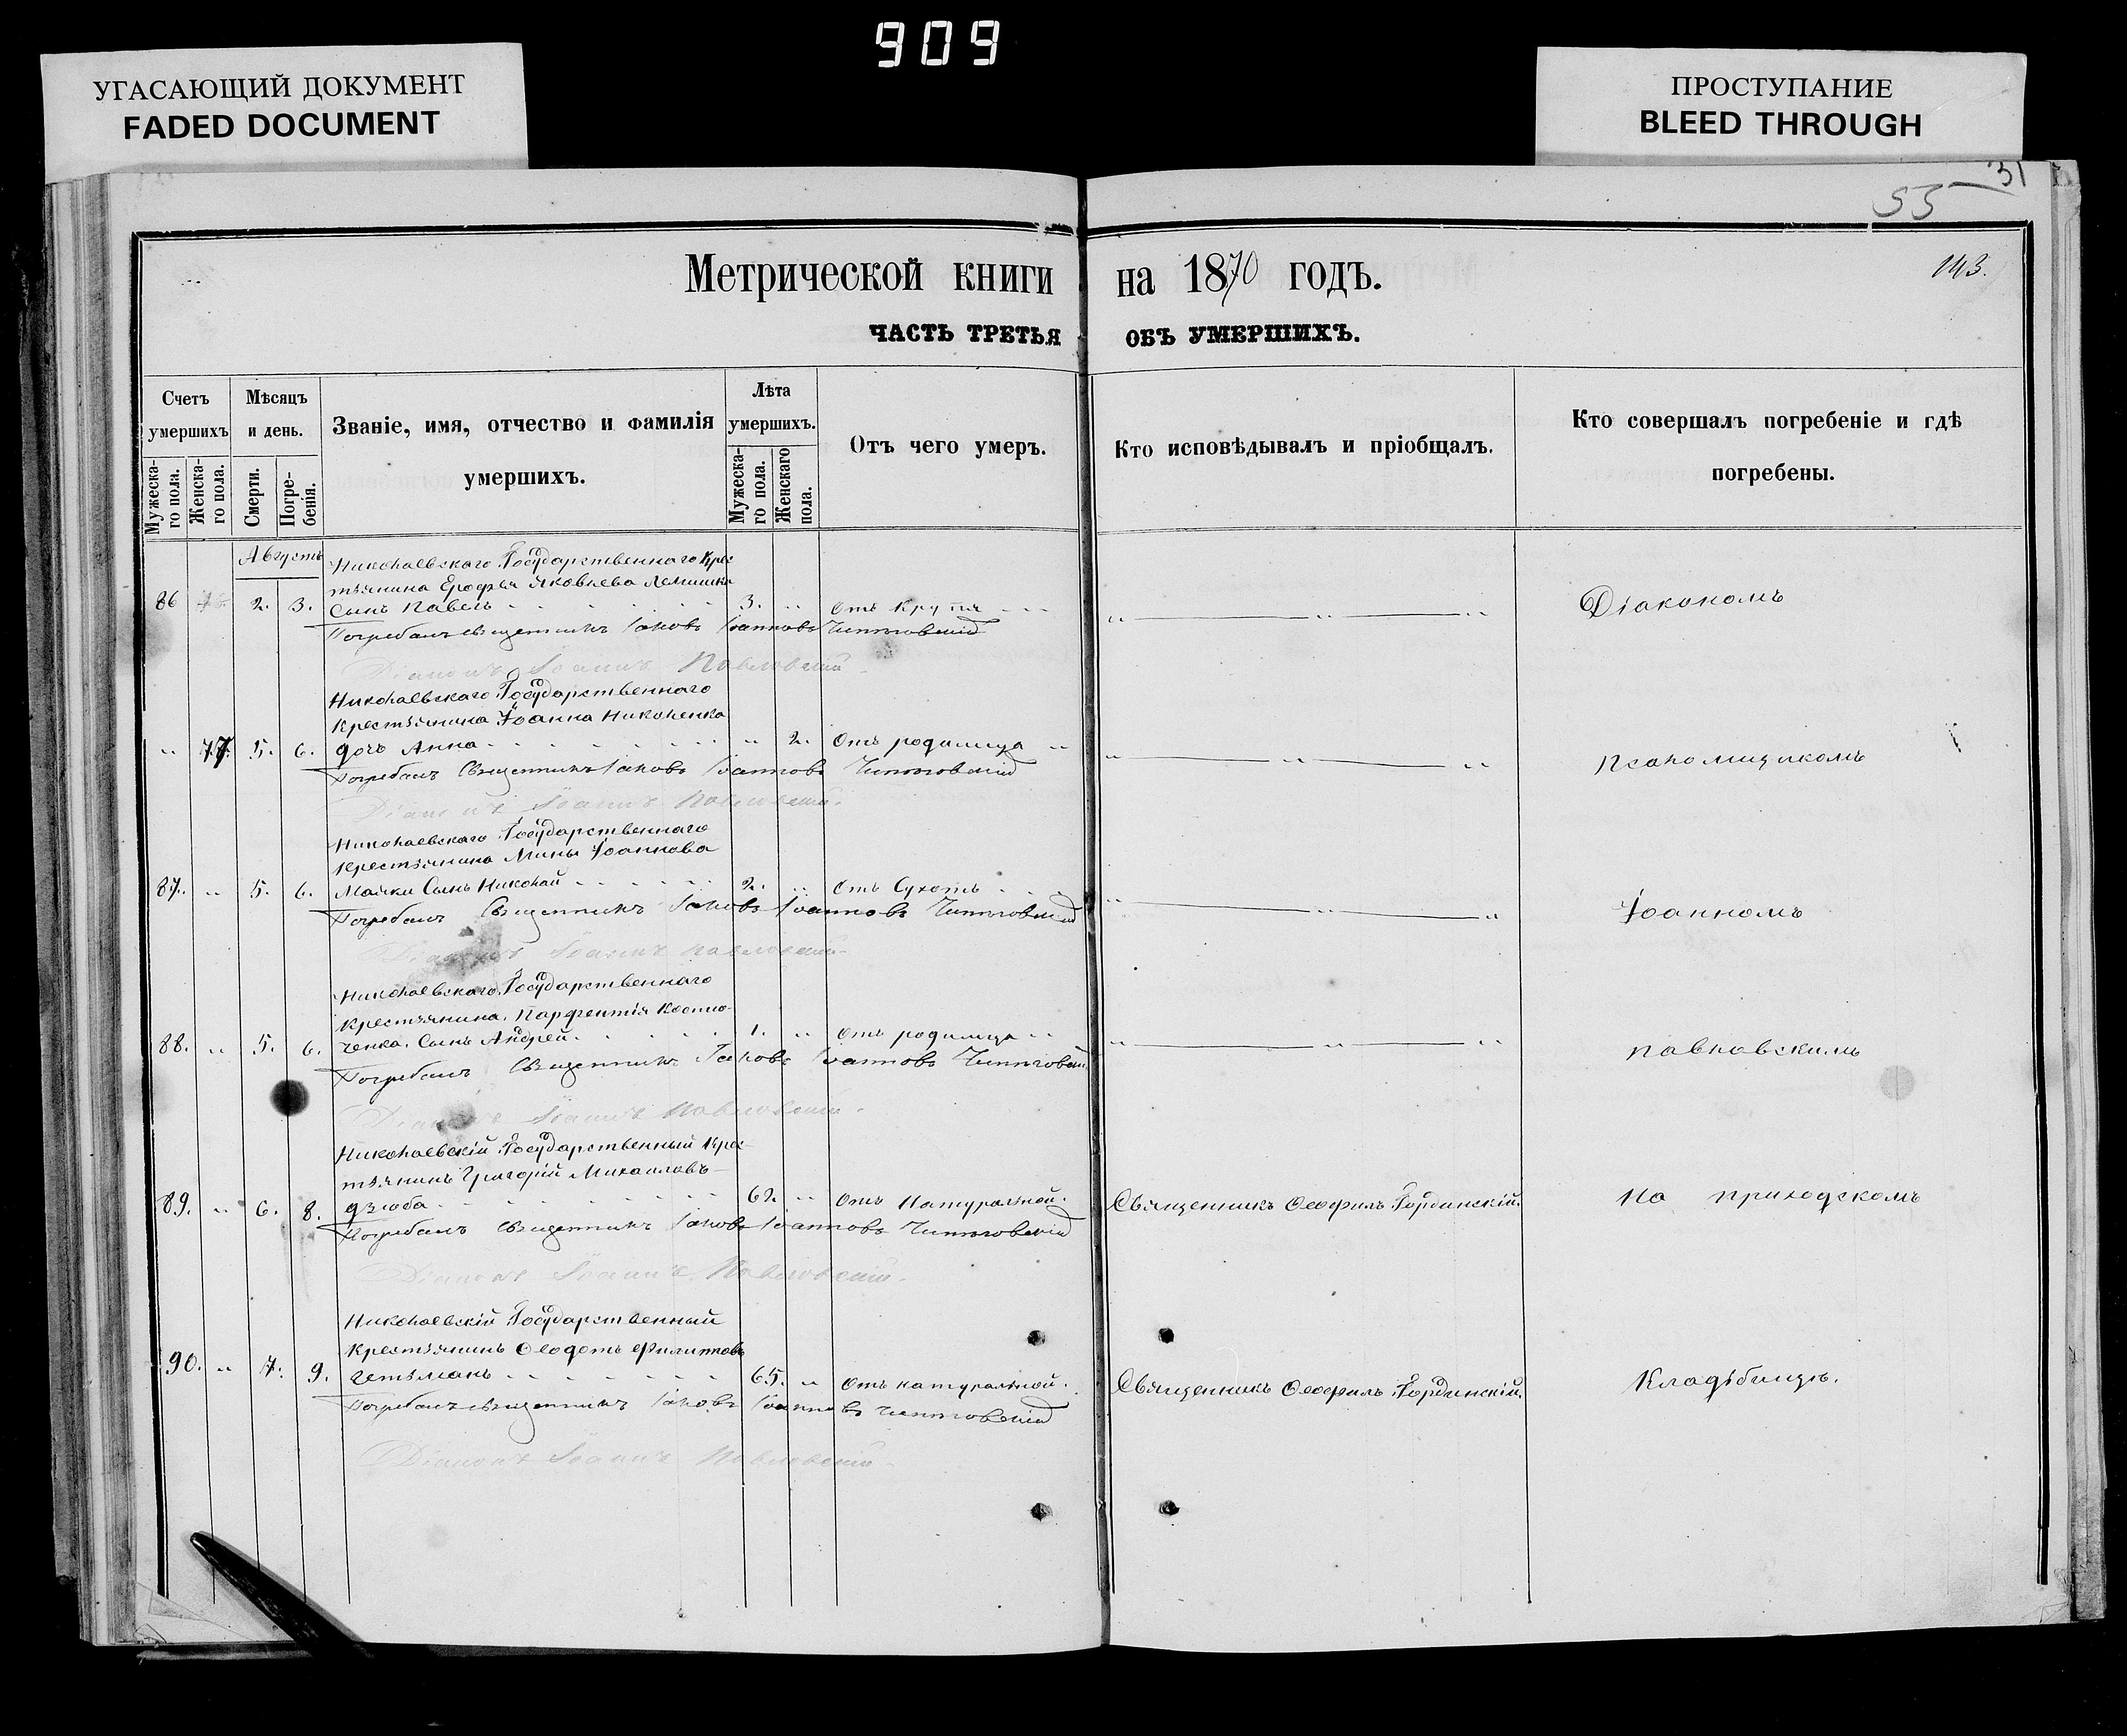 909
УГАСАЮЩИЙ ДОКУМЕНТ
FADED DOCUMENT
ПРОСТУПАНИЕ
BLEED THROUGH
31
55
Метрической книги на 1870 годъ.
143.
ЧАСТЬ ТРЕТЬЯ ОБЪ УМЕРШИХЪ.
Счетъ умершихъ
Мужеска-го пола.
Женска-го пола.
Мѣсяцъ и день.
Смерти.
Погре-бенія.
Званіе, имя, отчество и фамилія умершихъ.
Лѣта умершихъ.
Мужеска-го пола.
Женскаго пола.
Отъ чего умеръ.
Кто исповѣдывалъ и пріобщалъ.
Кто совершалъ погребеніе и гдѣ погребены.
Августъ
Николаевскаго Государственнаго Крес
тьянина Ерофея Яковлева Лемишка
86 2. 3. Сынъ Павелъ 3. „ Отъ Крупа Діакономъ
Погребалъ священникъ Іаковъ Іоанновъ
Діаконъ Іоаннъ Павловскій
Николаевскаго Государственнаго
Крестьянина Іоанна Николенка
„ 77. 5. 6. дочь Анна „ 2. Отъ родимца Псаломщикомъ
Погребалъ Священникъ Іаковъ Іоанновъ
Діаконъ Іоаннъ Павловскій.
Николаевскаго Государственнаго
Крестьянина Мины Іоаннова
87. „ 5. 6. Малки Сынъ Николай 2. „ Отъ Сухотъ Іоанномъ
Погребалъ Священникъ Іаковъ Іоанновъ
Діаконъ Іоаннъ Павловскій
Николаевскаго Государственнаго
Крестьянина Парфентія Костю-
88. „ 5. 6. ченка. Сынъ Андрей. 1. „ Отъ родимца Павловскимъ
Погребалъ Священникъ Іаковъ Іоанновъ
Діаконъ Іоаннъ Павловскій.
Николаевскій Государственный Крес-
тьянинъ Григорій Михаиловъ
89. „ 6. 8. Дзюба 62. „ Отъ Натуральной. Священникъ Ѳеофилъ Гординскій. На приходскомъ
Погребалъ Священникъ Іаковъ Іоанновъ
Діаконъ Іоаннъ Павловскій.
Николаевскій Государственный
Крестьянинъ Ѳеодотъ Филиповъ
90. „ 7. 9. Гетьманъ 65. „ Отъ натуральной. Священникъ Ѳеофилъ Гординскій. Кладбищѣ.
Погребалъ священникъ Іаковъ Іоанновъ
Діаконъ Іоаннъ Павловскій